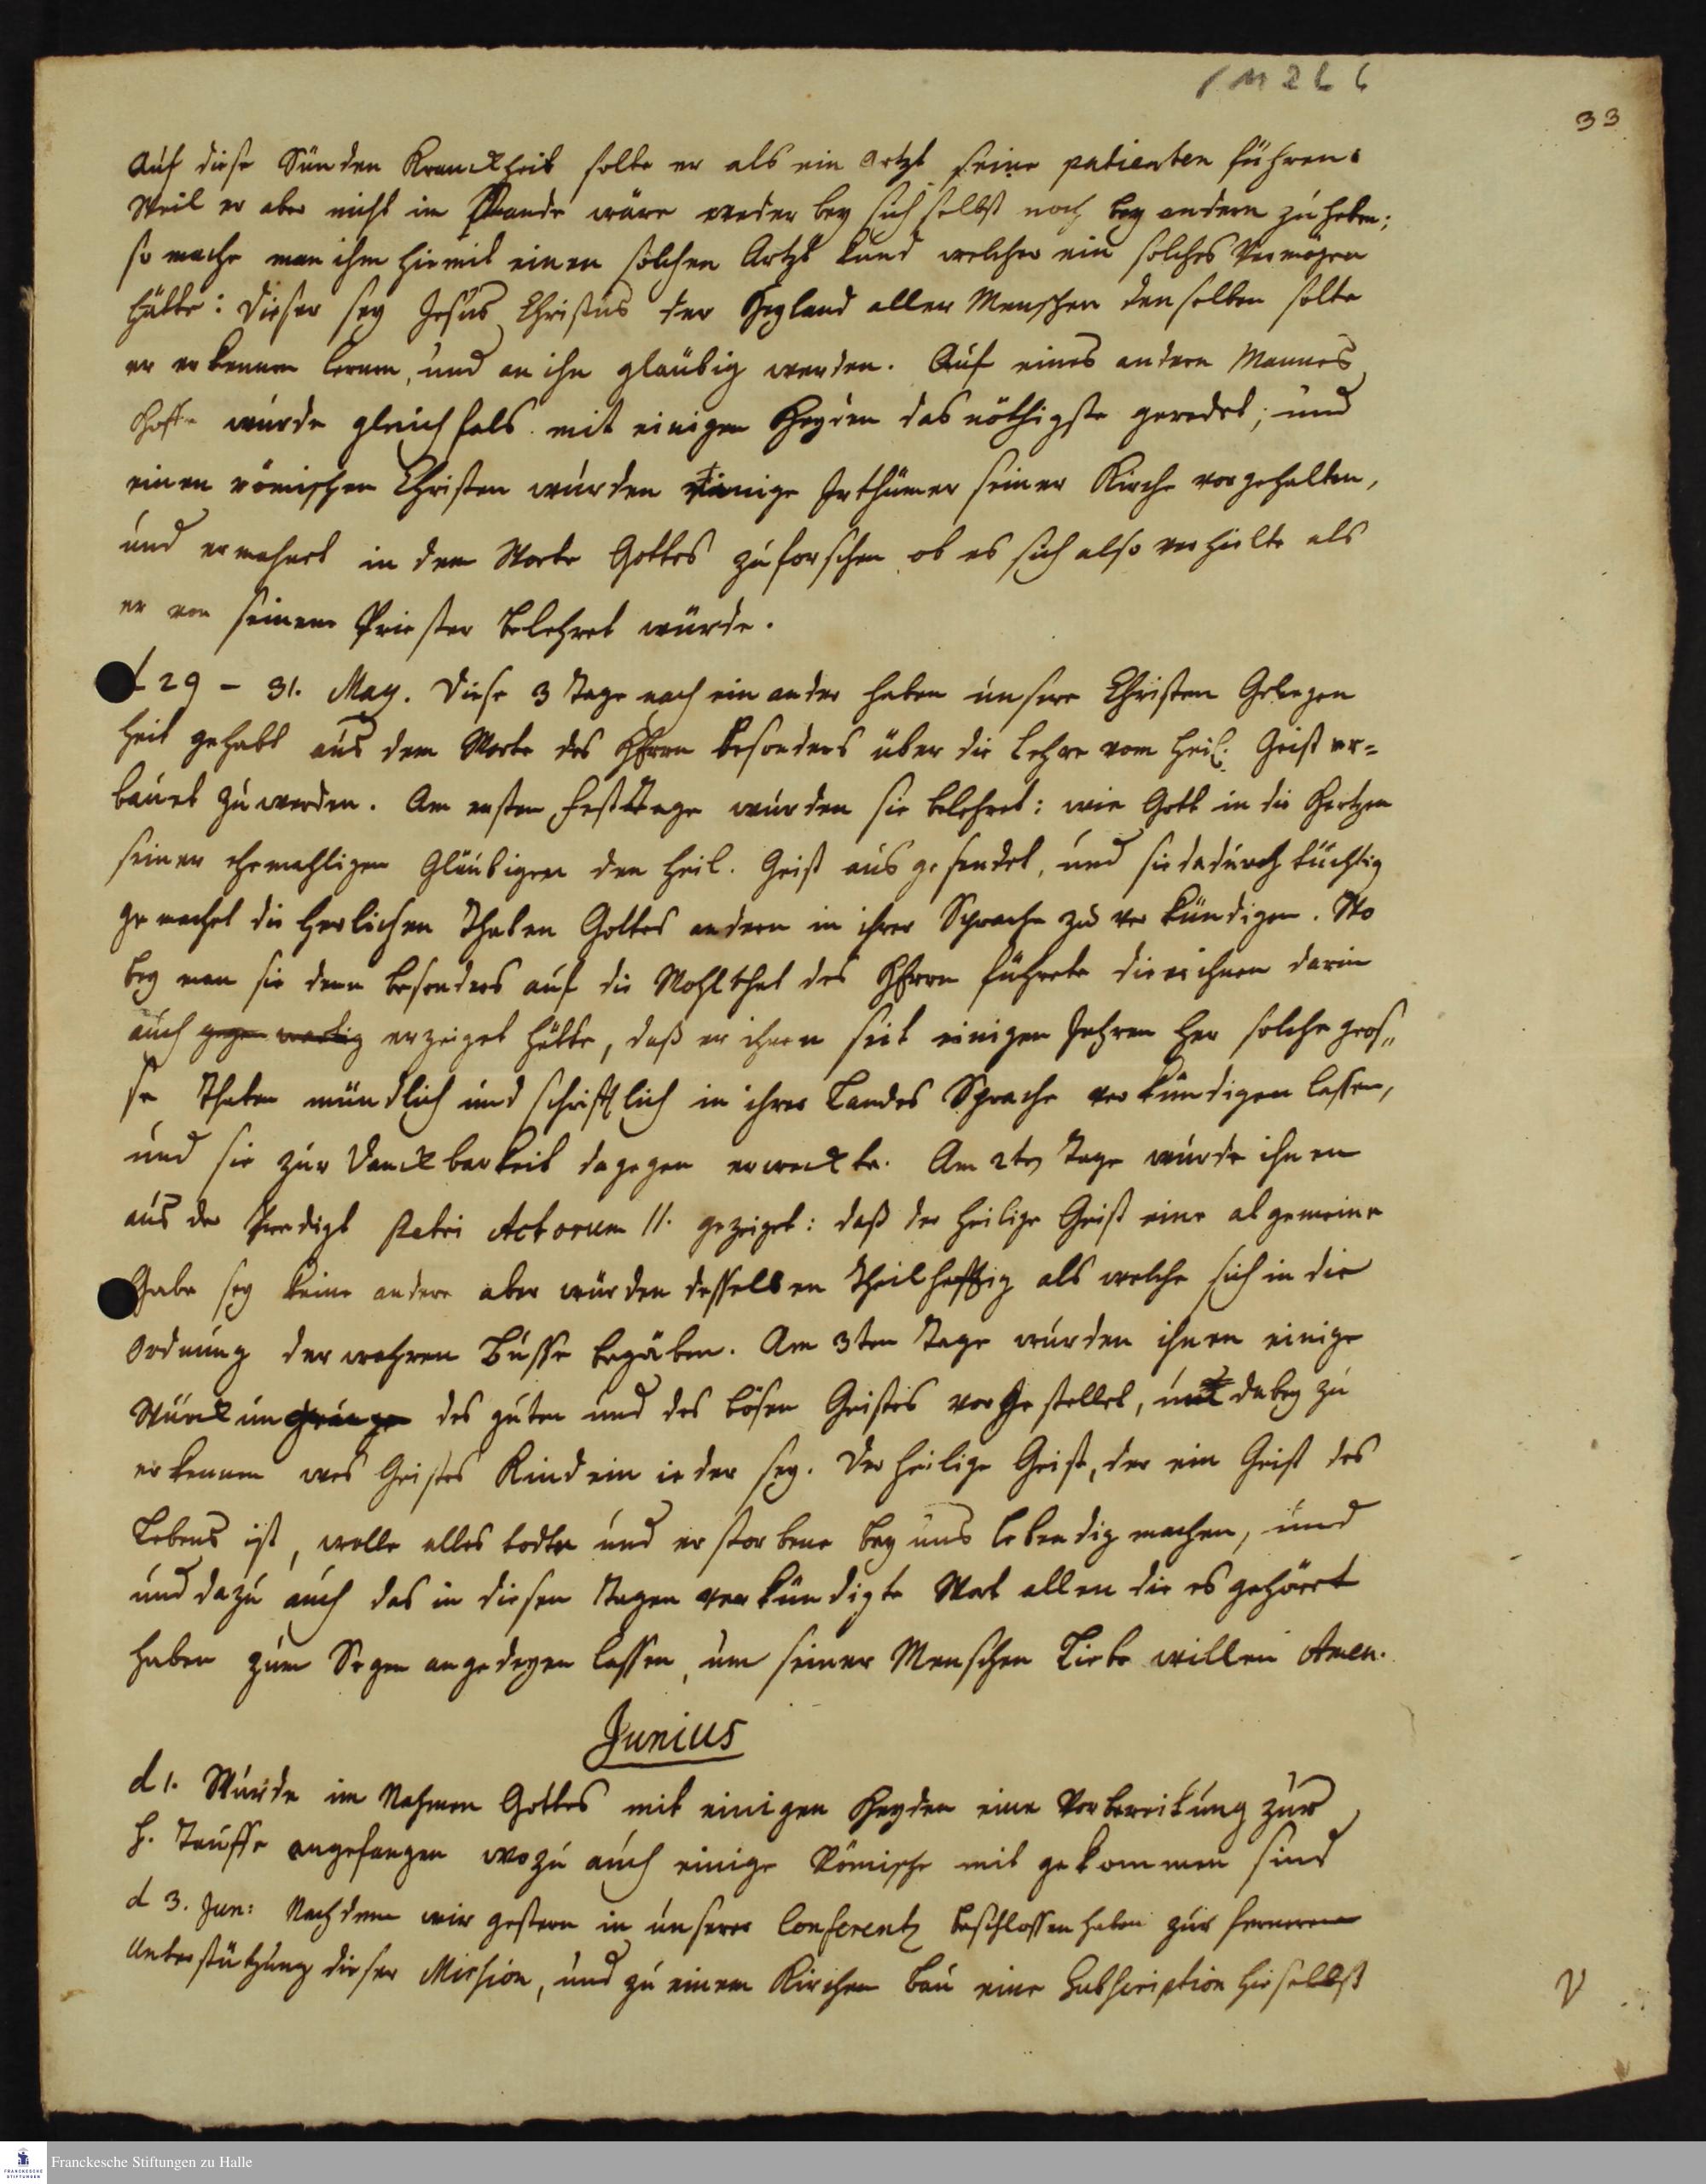 1M2L6
33
Auf diese Sünden Kranckheit solte er als ein Artzt seine patienten führen.
Weil er aber nicht im Stande wäre weder bey sich selbst noch bey andern zu heben;
so mache man ihm hiemit einen solchen Artzt kund welcher ein solches Vermögen
hätte: dieser sey Jesus Christus der Heyland aller Menschen denselben solte
er erkennen lernen, und an ihn gläubig werden. Auf eines andern Mannes
Hofe wurde gleichfals mit einigen Heyden das nöthigste geredet; und
einen römischen Christen wurden einige Irthümer seiner Kirche vorgehalten,
und ermahnet in dem Worte Gottes zu forschen ob es sich also verhielte als
er von seinem Priester belehret würde.
d 29 – 31. May. Diese 3 Tage nach einander haben unsere Christen Gelegen
heit gehabt aus dem Worte des HErrn besonders über die Lehre vom Heil. Geist er=
bauet zu werden. Am ersten Fest Tage wurden sie belehret: wie Gott in die Hertzen
seiner ehemahligen Gläubigen den Heil. Geist ausgesendet, und sie dadurch tüchtig
gemachet die herlichen Thaten Gottes andern in ihrer Sprache zu verkündigen. Wo
bey man sie denn besonders auf die Wohlthat des HErrn führete die er ihnen darin
auch gegenwertig erzeiget hätte, daß er ihnen seit einigen Jahren her solche gros„
se Thaten mündlich und schrifftlich in ihrer Landes Sprache verkündigen lassen,
und sie zur Danckbarkeit dagegen erweckte. Am 2ten Tage wurde ihnen
aus der Predigt Petri Actorum II. gezeiget: daß der heilige Geist eine algemeine
Gabe sey keine andere aber würden desselben theilhafftig als welche sich in die
Ordnung der wahren Busse begäben. Am 3ten Tage wurden ihnen einige
Würckungen des guten und des bösen Geistes vorgestellet, und dabey zu
erkennen wes Geistes Kind ein ieder sey. Der heilige Geist, der ein Geist des
Lebens ist, wolle alles todte und erstorbene bey uns lebendig machen, und
und dazu auch das in diesen Tagen verkündigte Wort allen die es gehöret
haben zum Segen angedeyen lassen, um seiner Menschen Liebe willen Amen.
Junius
d 1. Wurde im Nahmen Gottes mit einigen Heyden eine Vorbereitung zur
h. Tauffe angefangen wozu auch einige Römische mit gekommen sind
d 3. Jun: Nachdem wir gestern in unserer Conferentz beschlossen haben zur fernern
Unterstützung dieser Mission, und zu einem Kirchen Bau eine Subscription hieselbst
V
Franckesche Stiftungen zu Halle